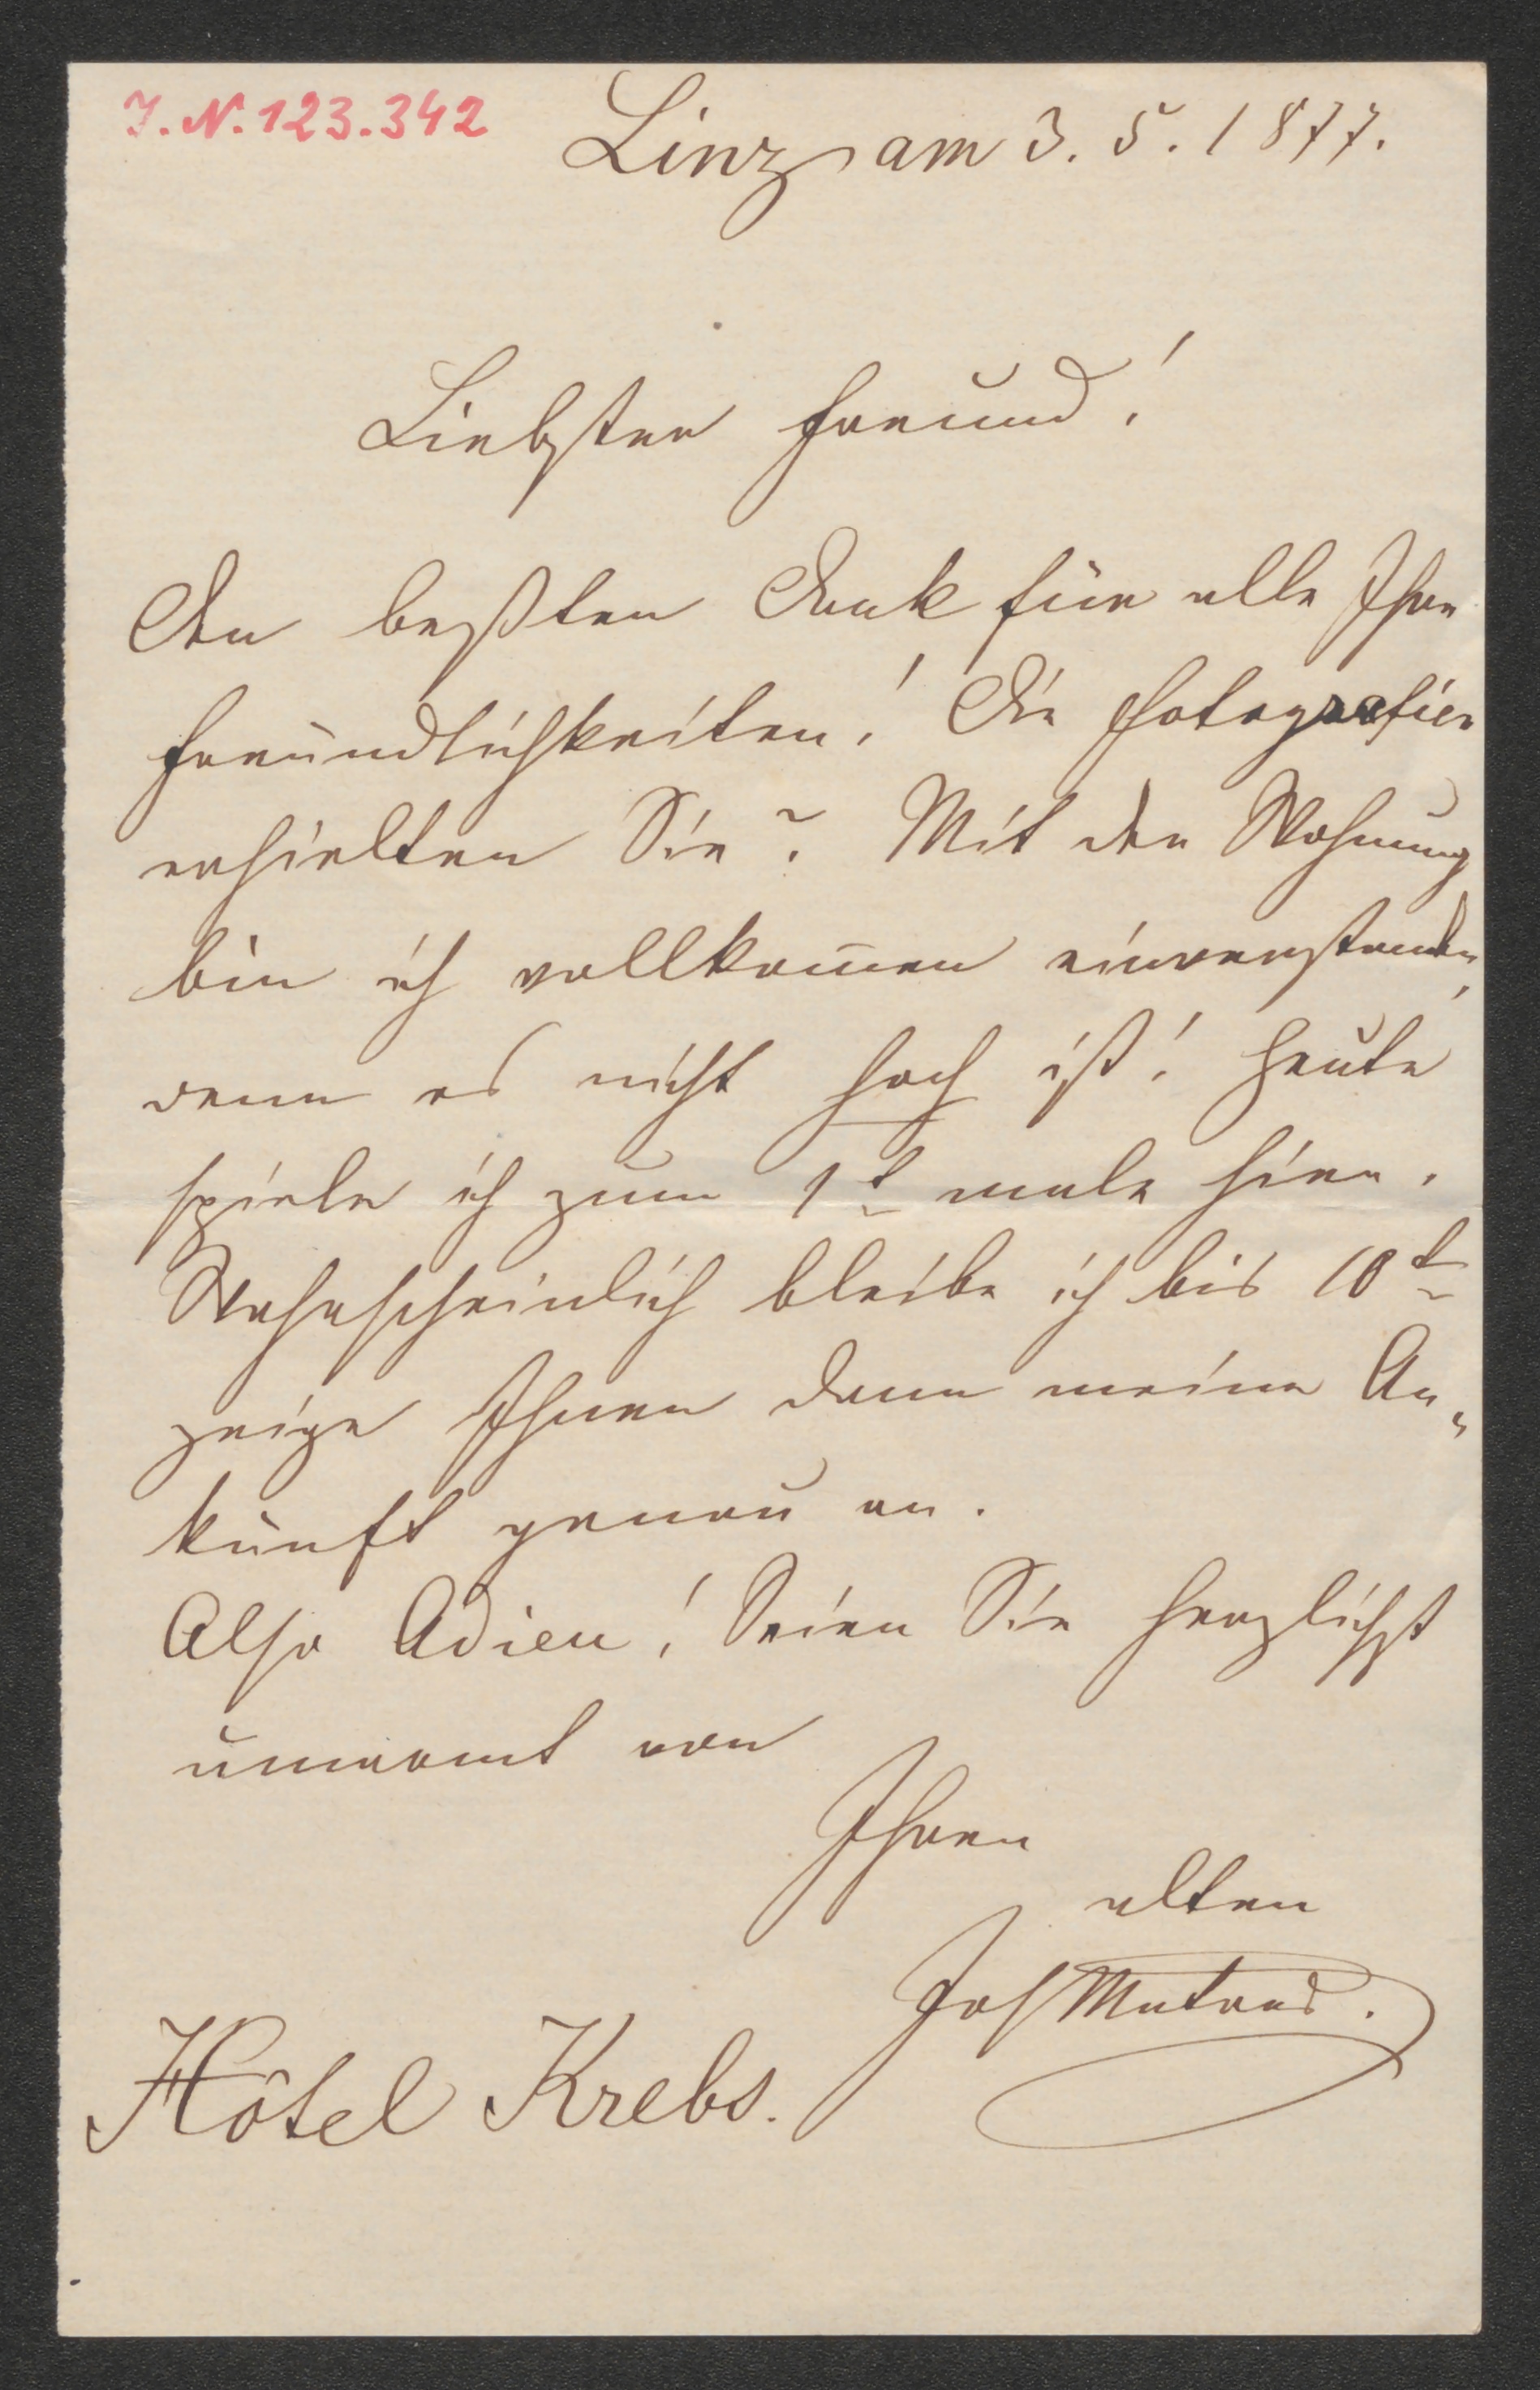 I.N.123.342
Linz am 3. 5. 1877.
Liebster Freund!
Den beßten Dank für alle Ihre
Freundlichkeiten! Die Fotografien
erhielten Sie? Mit der Wohnung
bin ich vollkom̄en einverstanden,
wenn es nicht hoch ist! Heute
spiele ich zum 1t male hier.
Wahrscheinlich bleibe ich bis 10t
zeige Ihnen dann meine An„
kunft genau an.
Also Adieu! Seien Sie herzlichst
umarmt von
Ihren
alten
Hôtel Krebs.